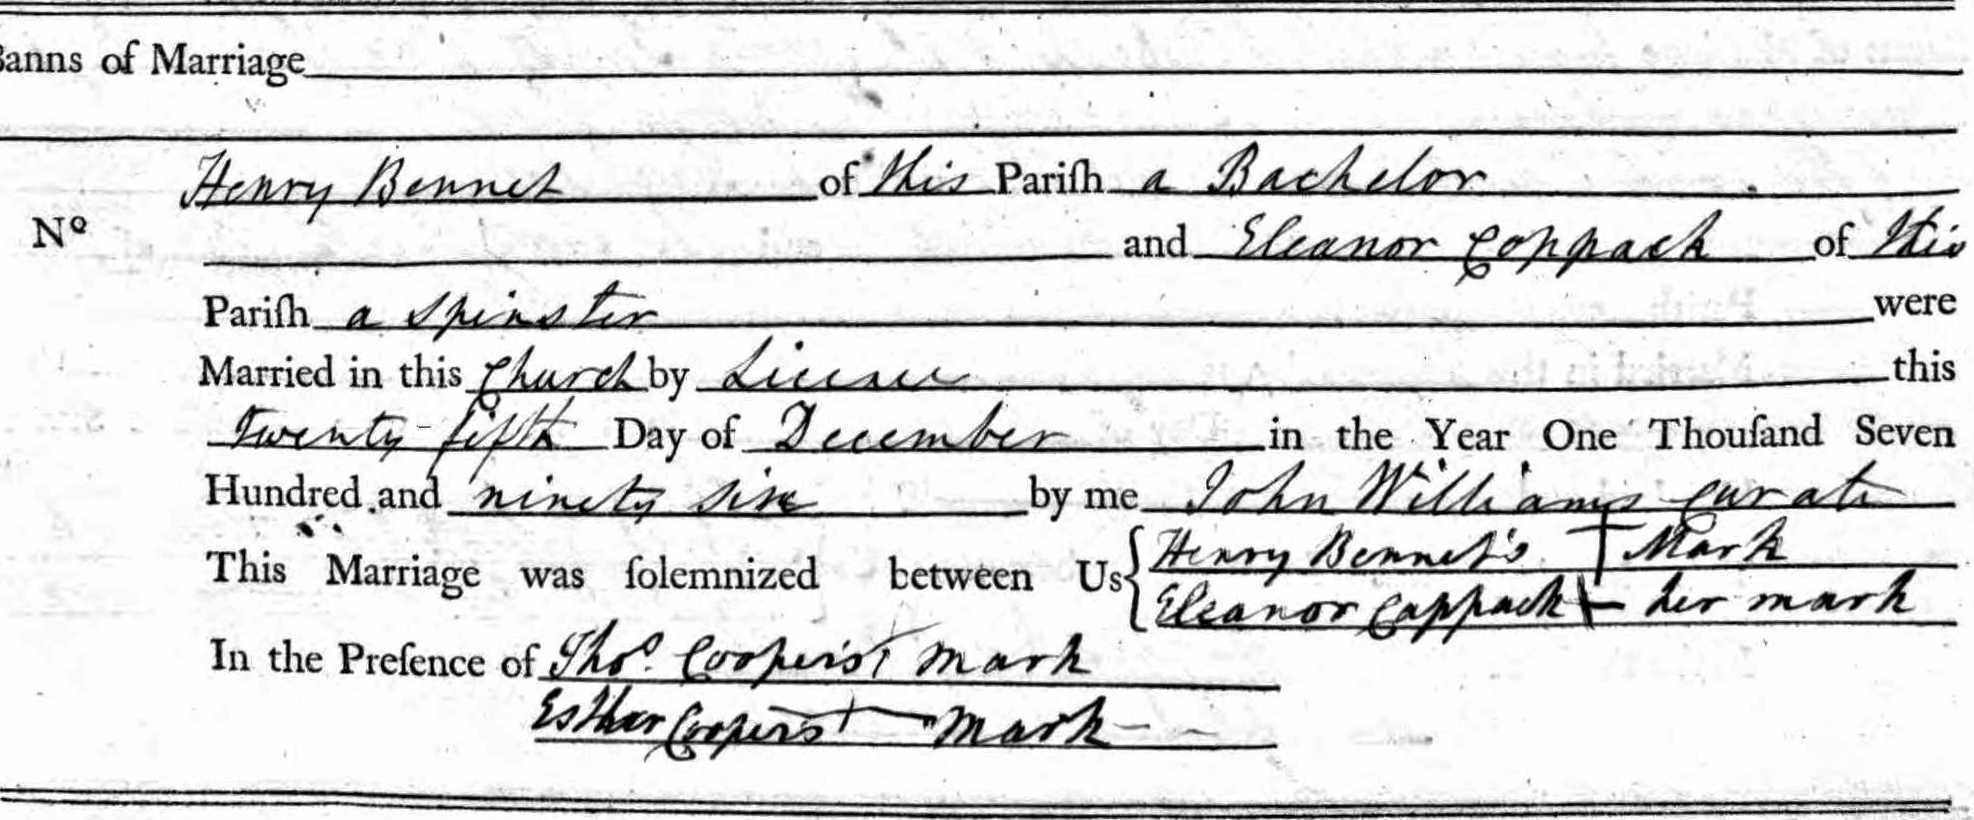 Banns of Marriage
Henry Bennet of this Pariſh a Bachelor
Nº and Eleanor Coppack of this
Pariſh a Spinster were
Married in this Church by Licence this
Twenty fifth Day of December in the Year One Thouſand Seven
Hundred and ninety six by me John Williams Curate
This Marriage was ſolemnized between Us { Henry Bennet's † Mark
Eleanor Cappack + her mark
In the Preſence of Thoˢ. Cooper's + mark
Esther Cooper's + mark